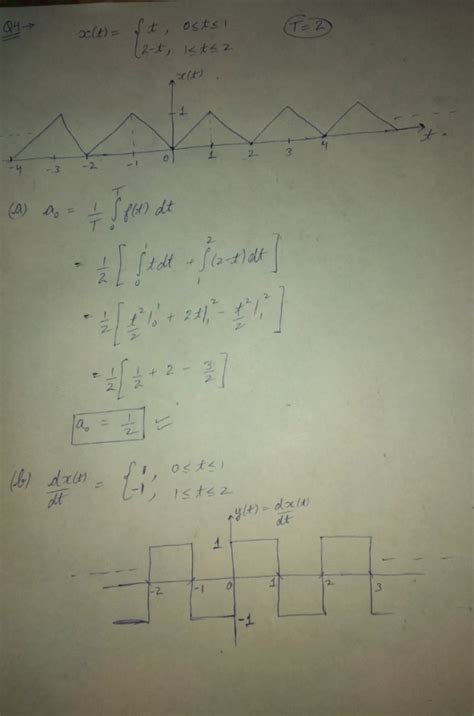 Q4→ x(t) = { t, 0≤t≤1 T=2
2-t, 1≤t≤2
x(t)
1
-4 -3 -2 -1 0 1 2 3 4 t
(a) a₀ = 1/T ∫₀ᵀ f(t) dt
= 1/2 [ ∫₀¹ t dt + ∫₁² (2-t) dt ]
= 1/2 [ t²/2 |₀¹ + 2t |₁² - t²/2 |₁² ]
= 1/2 [ 1/2 + 2 - 3/2 ]
a₀ = 1/2
(b) dx(t)/dt = { 1, 0≤t≤1
-1, 1≤t≤2
y(t) = dx(t)/dt
1
-2 -1 0 1 2 3
-1